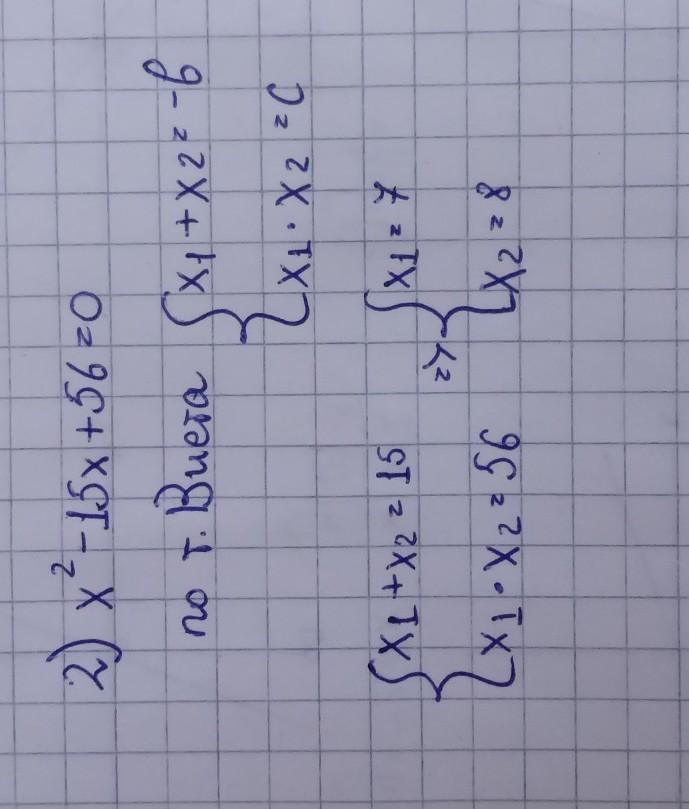 2) x² - 15x + 56 = 0
по т. Виета { x₁ + x₂ = -b
x₁ · x₂ = c
{ x₁ + x₂ = 15 => { x₁ = 7
x₁ · x₂ = 56 x₂ = 8